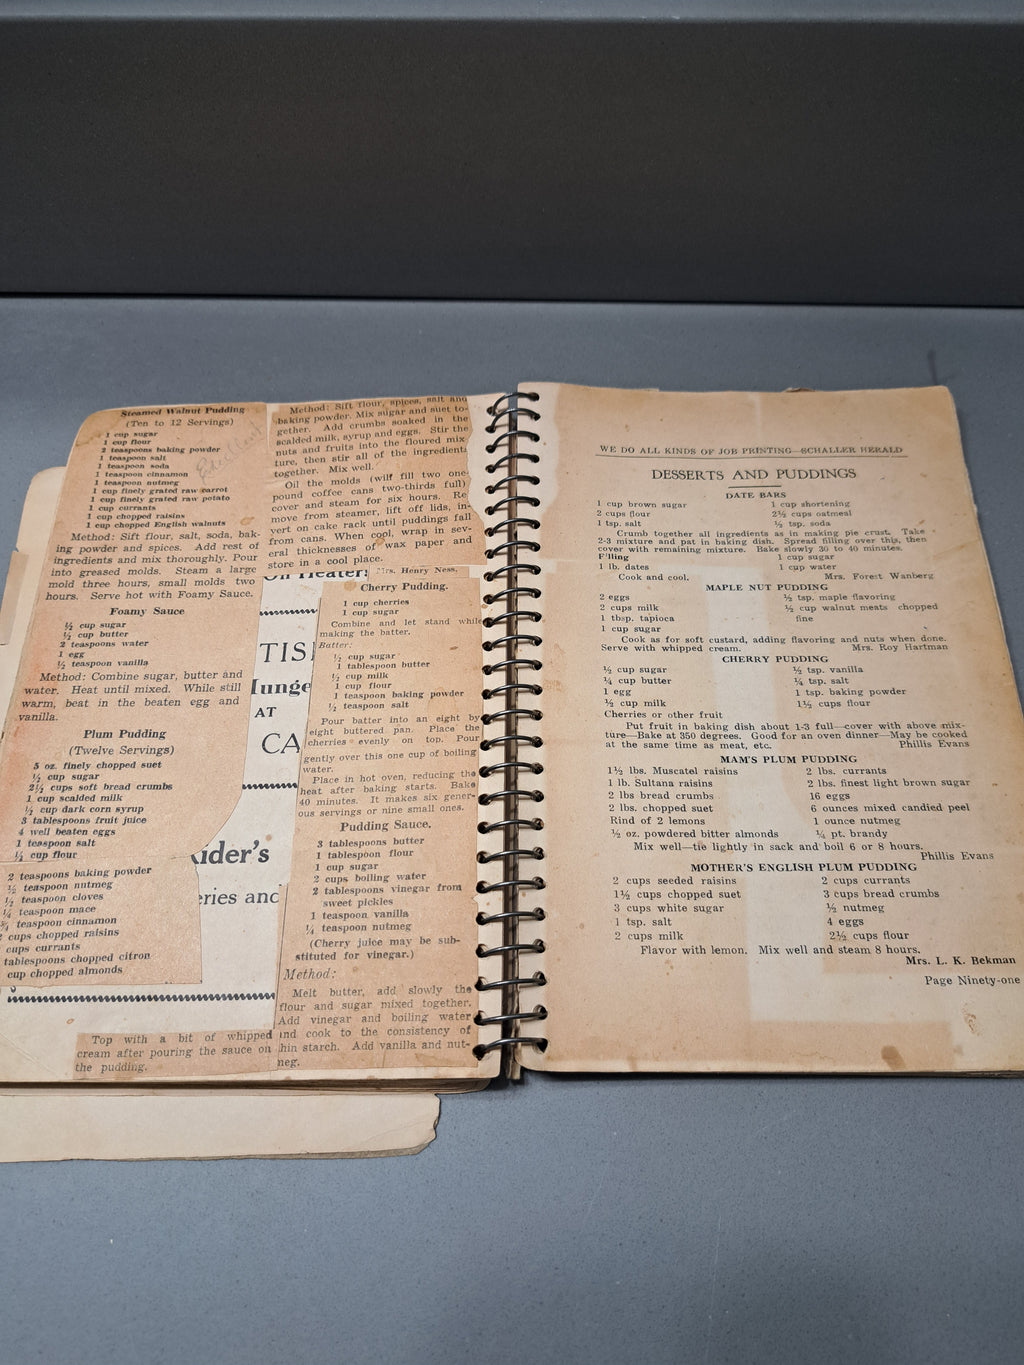 Steamed Walnut Pudding
(Ten to 12 Servings)
1 cup sugar
1 cup flour
2 teaspoons baking powder
1 teaspoon salt
1 teaspoon soda
1 teaspoon cinnamon
1 teaspoon nutmeg
1 cup finely grated raw carrot
1 cup finely grated raw potato
1 cup currants
1 cup chopped raisins
1 cup chopped English walnuts
Method: Sift flour, salt, soda, bak-
ing powder and spices. Add rest of
ingredients and mix thoroughly. Pour
into greased molds. Steam a large
mold three hours, small molds two
hours. Serve hot with Foamy Sauce.
Foamy Sauce
½ cup sugar
½ cup butter
2 teaspoons water
1 egg
½ teaspoon vanilla
Method: Combine sugar, butter and
water. Heat until mixed. While still
warm, beat in the beaten egg and
vanilla.
Plum Pudding
(Twelve Servings)
5 oz. finely chopped suet
½ cup sugar
2½ cups soft bread crumbs
1 cup scalded milk
½ cup dark corn syrup
3 tablespoons fruit juice
4 well beaten eggs
1 teaspoon salt
½ cup flour
2 teaspoons baking powder
½ teaspoon nutmeg
½ teaspoon cloves
¼ teaspoon mace
¾ teaspoon cinnamon
cups chopped raisins
cups currants
tablespoons chopped citron
cup chopped almonds
Method: Sift flour, spices, salt and
baking powder. Mix sugar and suet to-
gether. Add crumbs soaked in the
scalded milk, syrup and eggs. Stir the
nuts and fruits into the floured mix
ture, then stir all of the ingredient
together. Mix well.
Oil the molds (will fill two one-
pound coffee cans two-thirds full)
cover and steam for six hours. Re
move from steamer, lift off lids, in-
vert on cake rack until puddings fall
from cans. When cool, wrap in sev-
eral thicknesses of wax paper and
store in a cool place.
Mrs. Henry Ness.
Oil Heater
TIS
unge
AT
CA
ider's
eries and
Cherry Pudding.
1 cup cherries
1 cup sugar
Combine and let stand while
making the batter.
Batter:
½ cup sugar
1 tablespoon butter
½ cup milk
1 cup flour
1 teaspoon baking powder
½ teaspoon salt
Pour batter into an eight by
eight buttered pan. Place the
cherries evenly on top. Pour
gently over this one cup of boiling
water.
Place in hot oven, reducing the
heat after baking starts. Bake
40 minutes. It makes six gener-
ous servings or nine small ones.
Pudding Sauce.
3 tablespoons butter
1 tablespoon flour
1 cup sugar
2 cups boiling water
2 tablespoons vinegar from
sweet pickles
1 teaspoon vanilla
¼ teaspoon nutmeg
(Cherry juice may be sub-
stituted for vinegar.)
Method:
Melt butter, add slowly the
flour and sugar mixed together.
Add vinegar and boiling water
and cook to the consistency of
thin starch. Add vanilla and nut-
meg.
Top with a bit of whipped
cream after pouring the sauce on
the pudding.
WE DO ALL KINDS OF JOB PRINTING—SCHALLER HERALD
DESSERTS AND PUDDINGS
DATE BARS
1 cup brown sugar 1 cup shortening
2 cups flour 2½ cups oatmeal
1 tsp. salt ½ tsp. soda
Crumb together all ingredients as in making pie crust. Take
2-3 mixture and pat in baking dish. Spread filling over this, then
cover with remaining mixture. Bake slowly 30 to 40 minutes.
F'lling 1 cup sugar
1 lb. dates 1 cup water
Cook and cool. Mrs. Forest Wanberg
MAPLE NUT PUDDING
2 eggs ½ tsp. maple flavoring
2 cups milk ½ cup walnut meats chopped
1 tbsp. tapioca fine
1 cup sugar
Cook as for soft custard, adding flavoring and nuts when done.
Serve with whipped cream. Mrs. Roy Hartman
CHERRY PUDDING
½ cup sugar ½ tsp. vanilla
¼ cup butter ¼ tsp. salt
1 egg 1 tsp. baking powder
½ cup milk 1½ cups flour
Cherries or other fruit
Put fruit in baking dish about 1-3 full—cover with above mix-
ture—Bake at 350 degrees. Good for an oven dinner—May be cooked
at the same time as meat, etc. Phillis Evans
MAM'S PLUM PUDDING
1½ lbs. Muscatel raisins 2 lbs. currants
1 lb. Sultana raisins 2 lbs. finest light brown sugar
2 lbs bread crumbs 16 eggs
2 lbs. chopped suet 6 ounces mixed candied peel
Rind of 2 lemons 1 ounce nutmeg
½ oz. powdered bitter almonds ¼ pt. brandy
Mix well—tie lightly in sack and boil 6 or 8 hours.
Phillis Evans
MOTHER'S ENGLISH PLUM PUDDING
2 cups seeded raisins 2 cups currants
1½ cups chopped suet 3 cups bread crumbs
3 cups white sugar ½ nutmeg
1 tsp. salt 4 eggs
2 cups milk 2½ cups flour
Flavor with lemon. Mix well and steam 8 hours.
Mrs. L. K. Bekman
Page Ninety-one